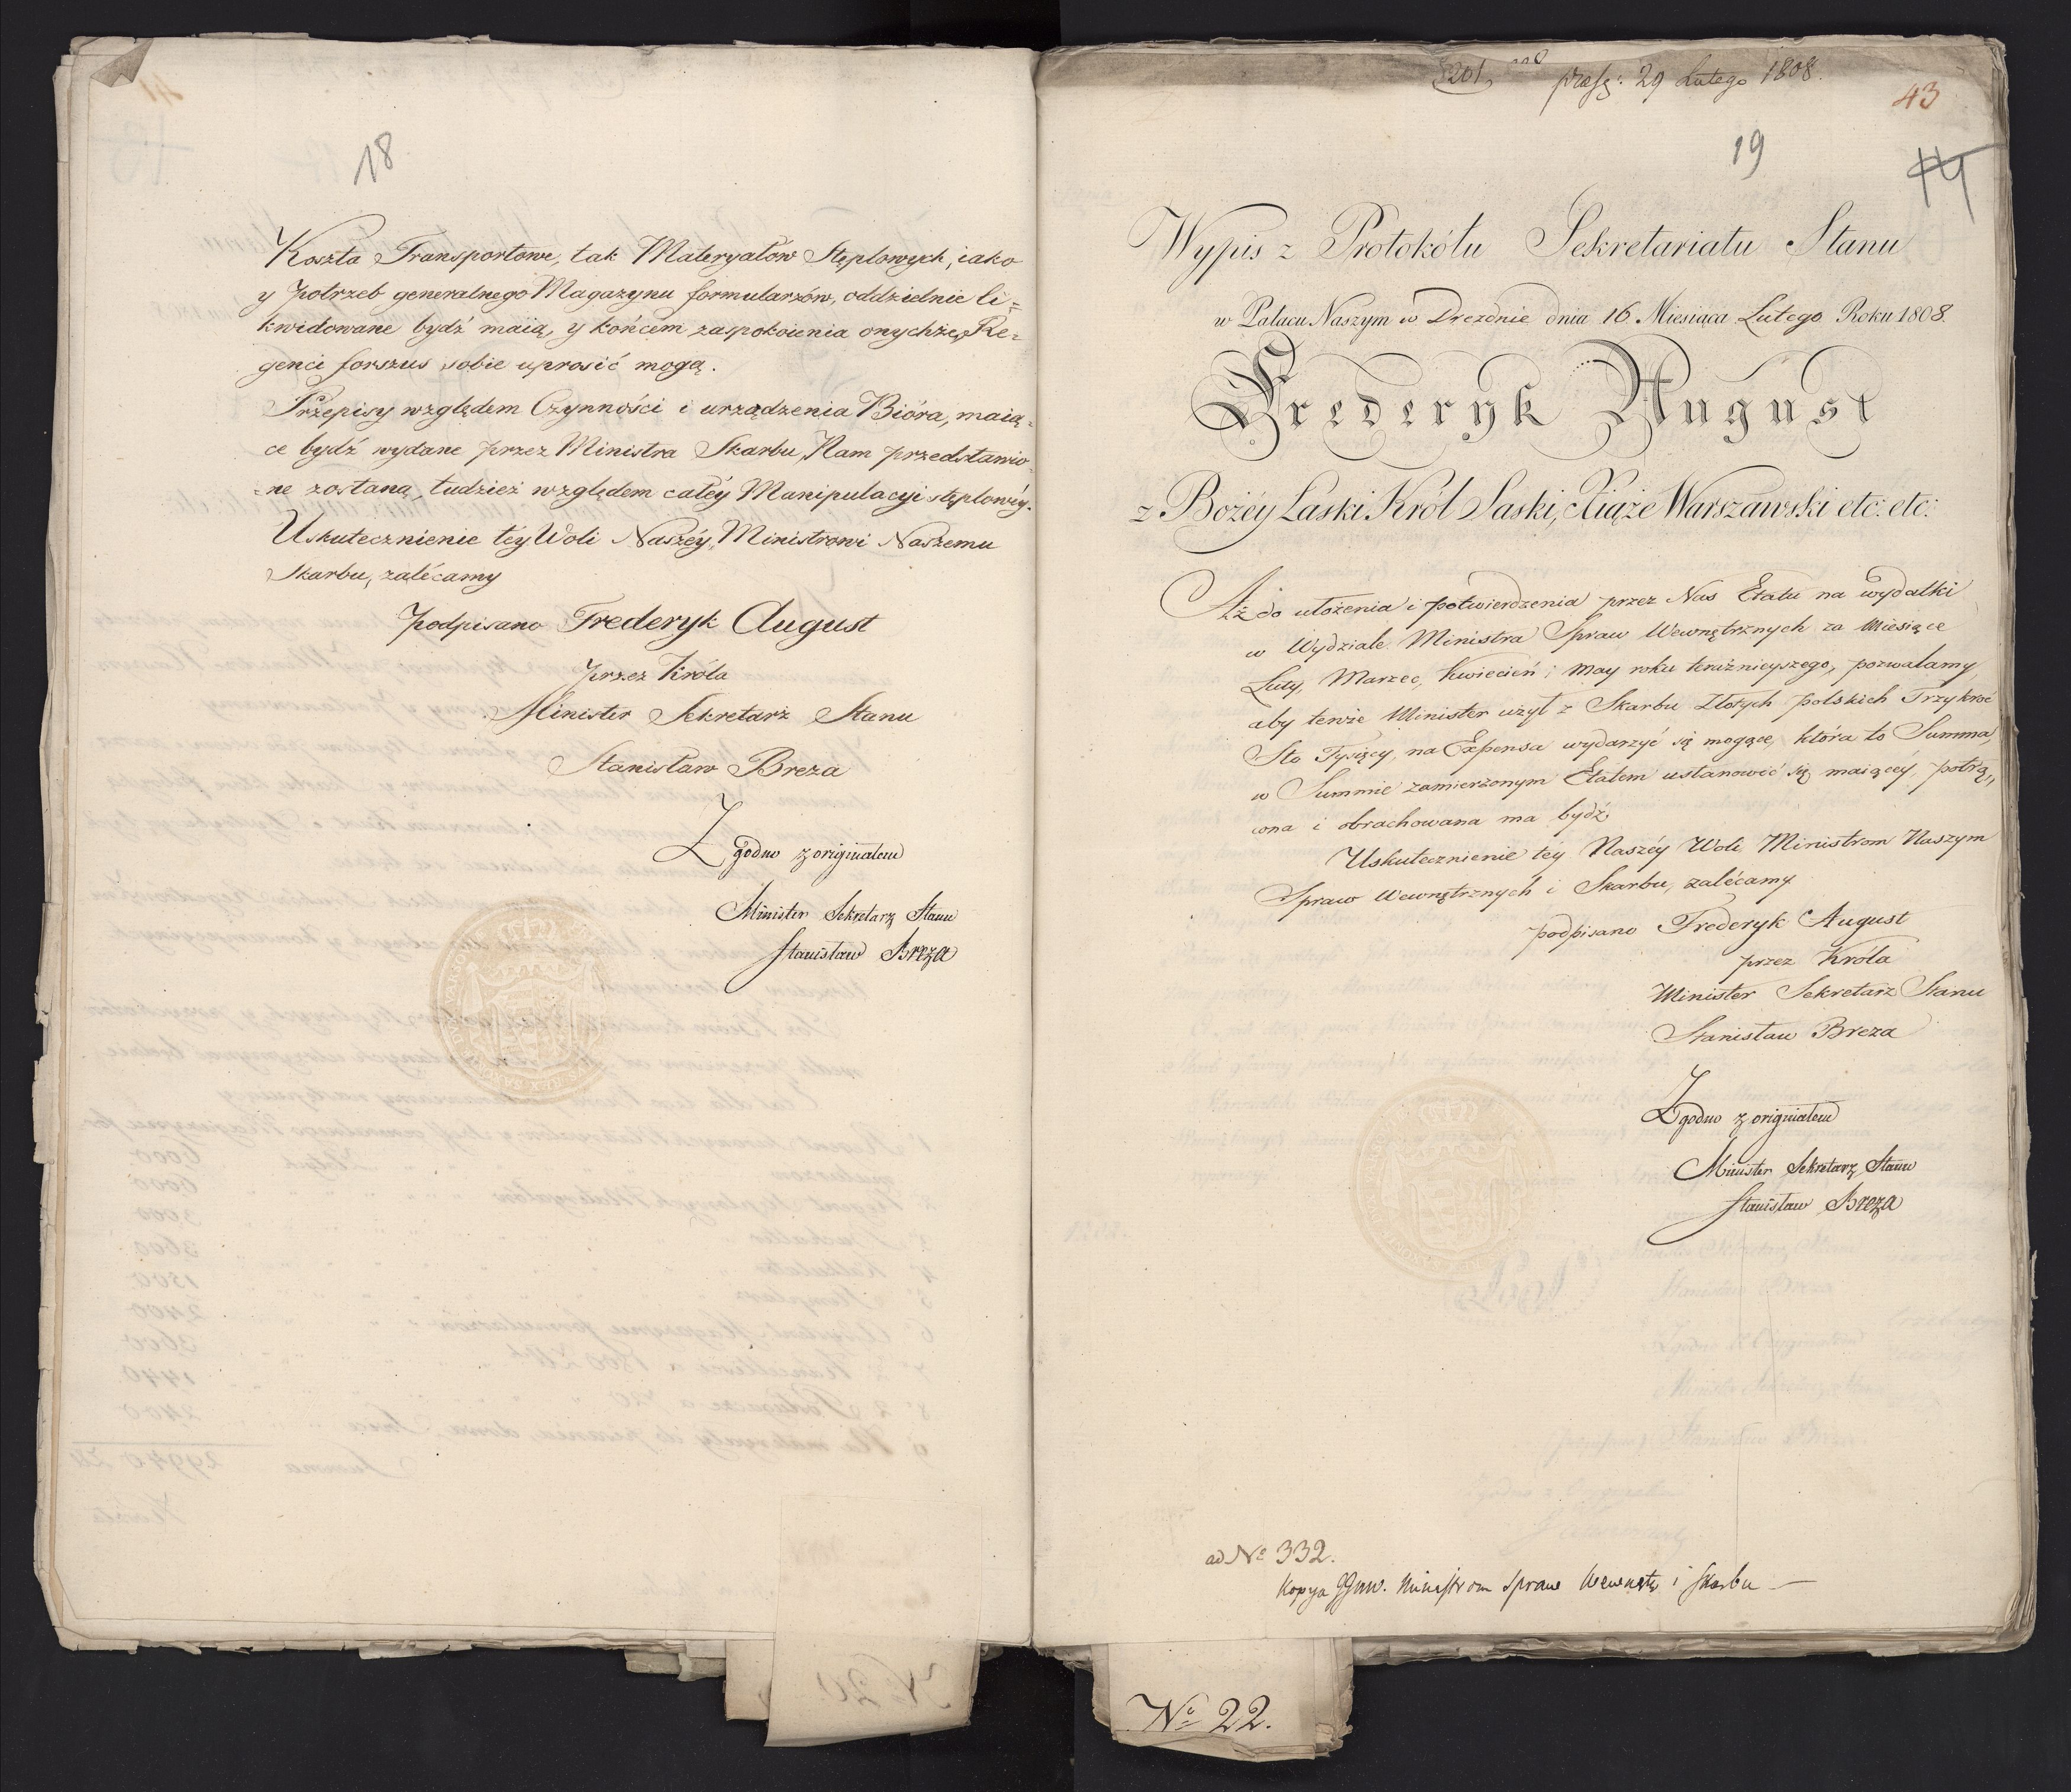 18
Koszta Transportowe, tak Materyałów Stęplowych, iako
y potrzeb generalnego Magazynu formularzów, oddzielnie li=
kwidowane bydź maią, y końcem zaspokoienia onychże, Re=
genci forszus sobie uprosić mogą.
Przepisy względem Czynności i urządzenia Bióra, maią=
ce bydź wydane przez Ministra Skarbu, Nam przedstawio=
=ne zostaną, tudzież względem całéy Manipulacyi stęplowéy.
Uskutecznienie téy Woli Naszéy, Ministrowi Naszemu
Skarbu, zalécamy
podpisano Frederyk August
przez Króla
Minister Sekretarz Stanu
Stanisław Breza
Zgodno z originałem
Minister Sekretarz Stanu
Stanisław Breza
201
29 Lutego 1808.
43
19
44
Wypis z Protokółu Sekretariatu Stanu
w Pałacu Naszym w Dreznie dnia 16 Miesiąca Lutego Roku 1808.
Frederyk August
z Bożéy Łaski Król Saski, Xiąże Warszawski etc: etc:
Aż do ułożenia i potwierdzenia przez Nas Etatu na wydatki
w Wydziale Ministra Spraw Wewnętrznych za Miesiące
Luty, Marzec, Kwiecień i May roku teraźnieyszego, pozwalamy,
aby tenże Minister użył z Skarbu Złotych polskich Trzykroć
Sto Tysięcy, na Expensa wydarzyć się mogące, która to Summa,
w Summie zamierzonym Etatem ustanowić się maiącéy, potrą„
cona i obrachowana ma bydź.
Uskutecznienie téy Naszéy Woli Ministrom Naszym
Spraw Wewnętrznych i Skarbu, zalécamy.
podpisano Frederyk August
przez Króla
Minister Sekretarz Stanu
Stanisław Breza
Zgodno z originałem
Minister Sekretarz Stanu
Stanisław Breza
ad No 332.
Kopya Ministrom Spraw Wewnętr i Skarbu —
No 22.